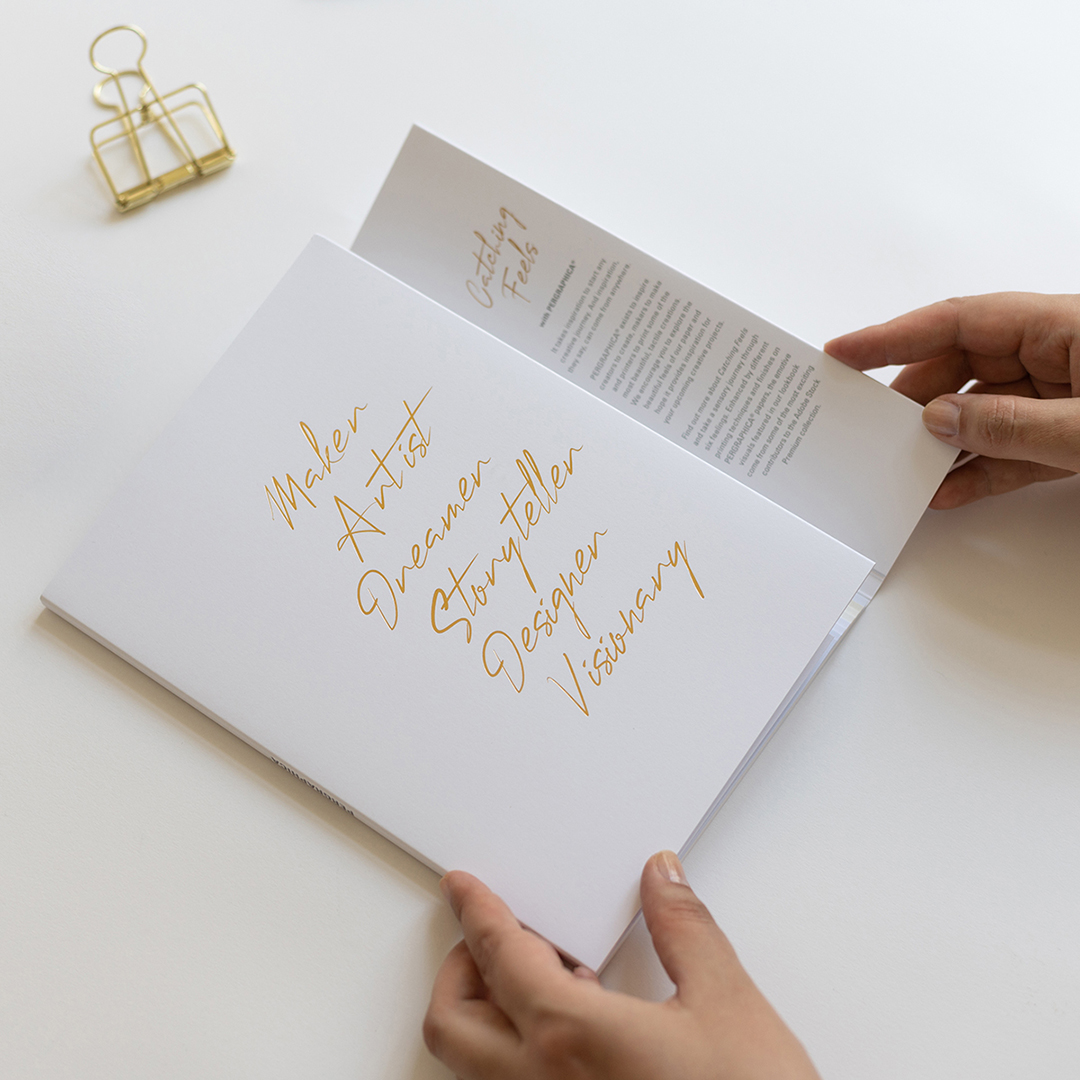 Maker
Artist
Dreamer
Storyteller
Designer
Visionary
Catching
Feels
with PERGRAPHICA®
It takes inspiration to start any
creative journey. And inspiration,
they say, can come from anywhere.
PERGRAPHICA® exists to inspire
creators to create, makers to make
and printers to print some of the
most beautiful, tactile creations.
We encourage you to explore the
beautiful feels of our paper and
hope it provides inspiration for
your upcoming creative projects.
Find out more about Catching Feels
and take a sensory journey through
six feelings. Enhanced by different
printing techniques and finishes on
PERGRAPHICA® papers, the emotive
visuals featured in our lookbook
come from some of the most exciting
contributors to the Adobe Stock
Premium collection.
PERGRAPHICA